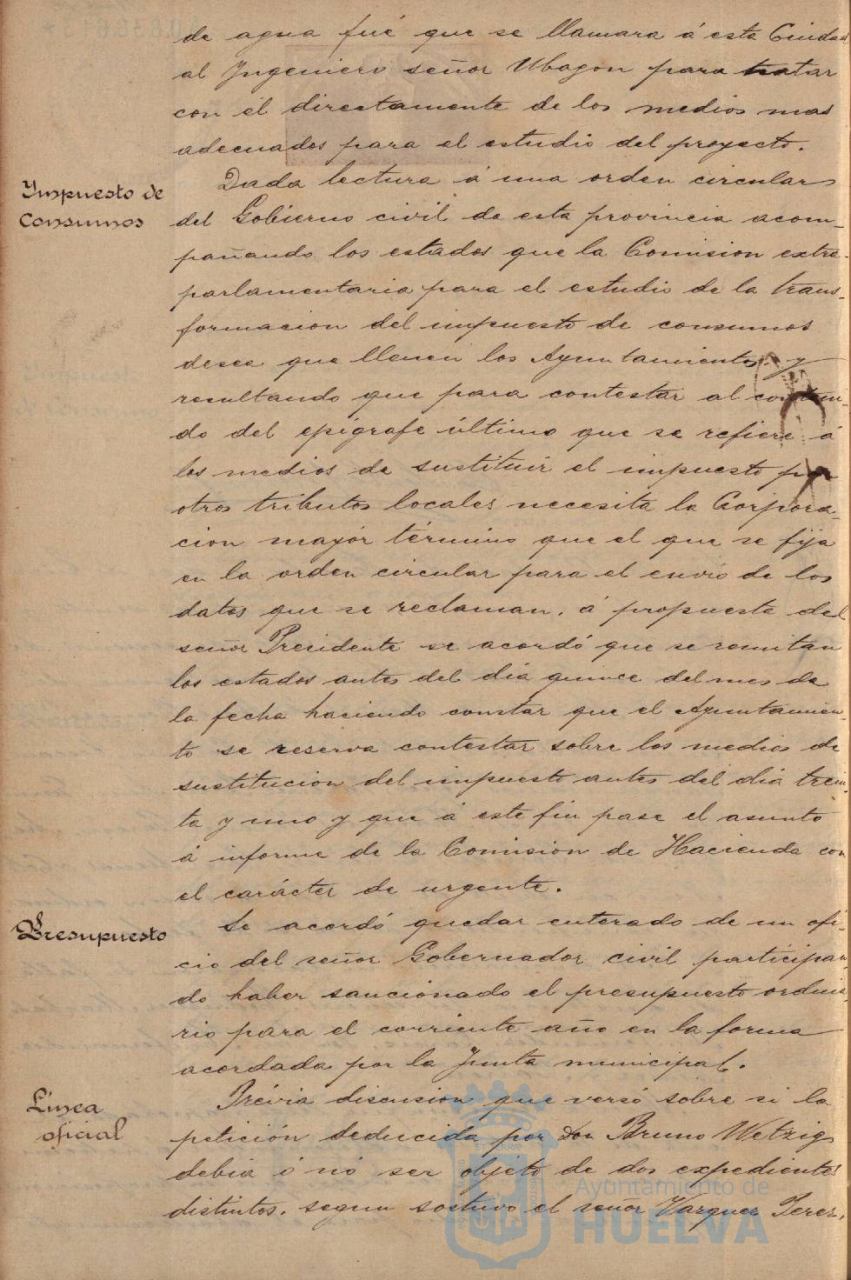 de agua fué que se llamara á esta Ciudad
al Ingeniero señor Ubagon para tratar
con él directamente de los medios mas
adecuados para el estudio del proyecto.
Impuesto de
Consumos
Dada lectura á una orden circular
del Gobierno civil de esta provincia acom-
pañando los estados que la Comision extra-
parlamentaria para el estudio de la trans-
formacion del impuesto de consumos
desea que llenen los Ayuntamientos y
resultando que para contestar al conteni-
do del epígrafe último que se refiere á
los medios de sustituir el impuesto por
otros tributos locales necesita la Corpora-
cion mayor término que el que se fija
en la orden circular para el envio de los
datos que se reclaman, á propuesta del
señor Presidente se acordó que se remitan
los estados antes del dia quince del mes de
la fecha haciendo constar que el Ayuntamien-
to se reserva contestar sobre los medios de
sustitucion del impuesto antes del dia trein-
ta y uno y que á este fin pase el asunto
á informe de la Comision de Hacienda con
el carácter de urgente.
Presupuesto
Se acordó quedar enterado de un ofi-
cio del señor Gobernador civil participan-
do haber sancionado el presupuesto ordina-
rio para el corriente año en la forma
acordada por la Junta municipal.
Línea
oficial
Prévia discusion que versó sobre si la
petición deducida por don Bruno Wetzig
debia ó nó ser objeto de dos expedientes
distintos, segun sostuvo el señor Vazquez Perez,
Ayuntamiento de
HUELVA